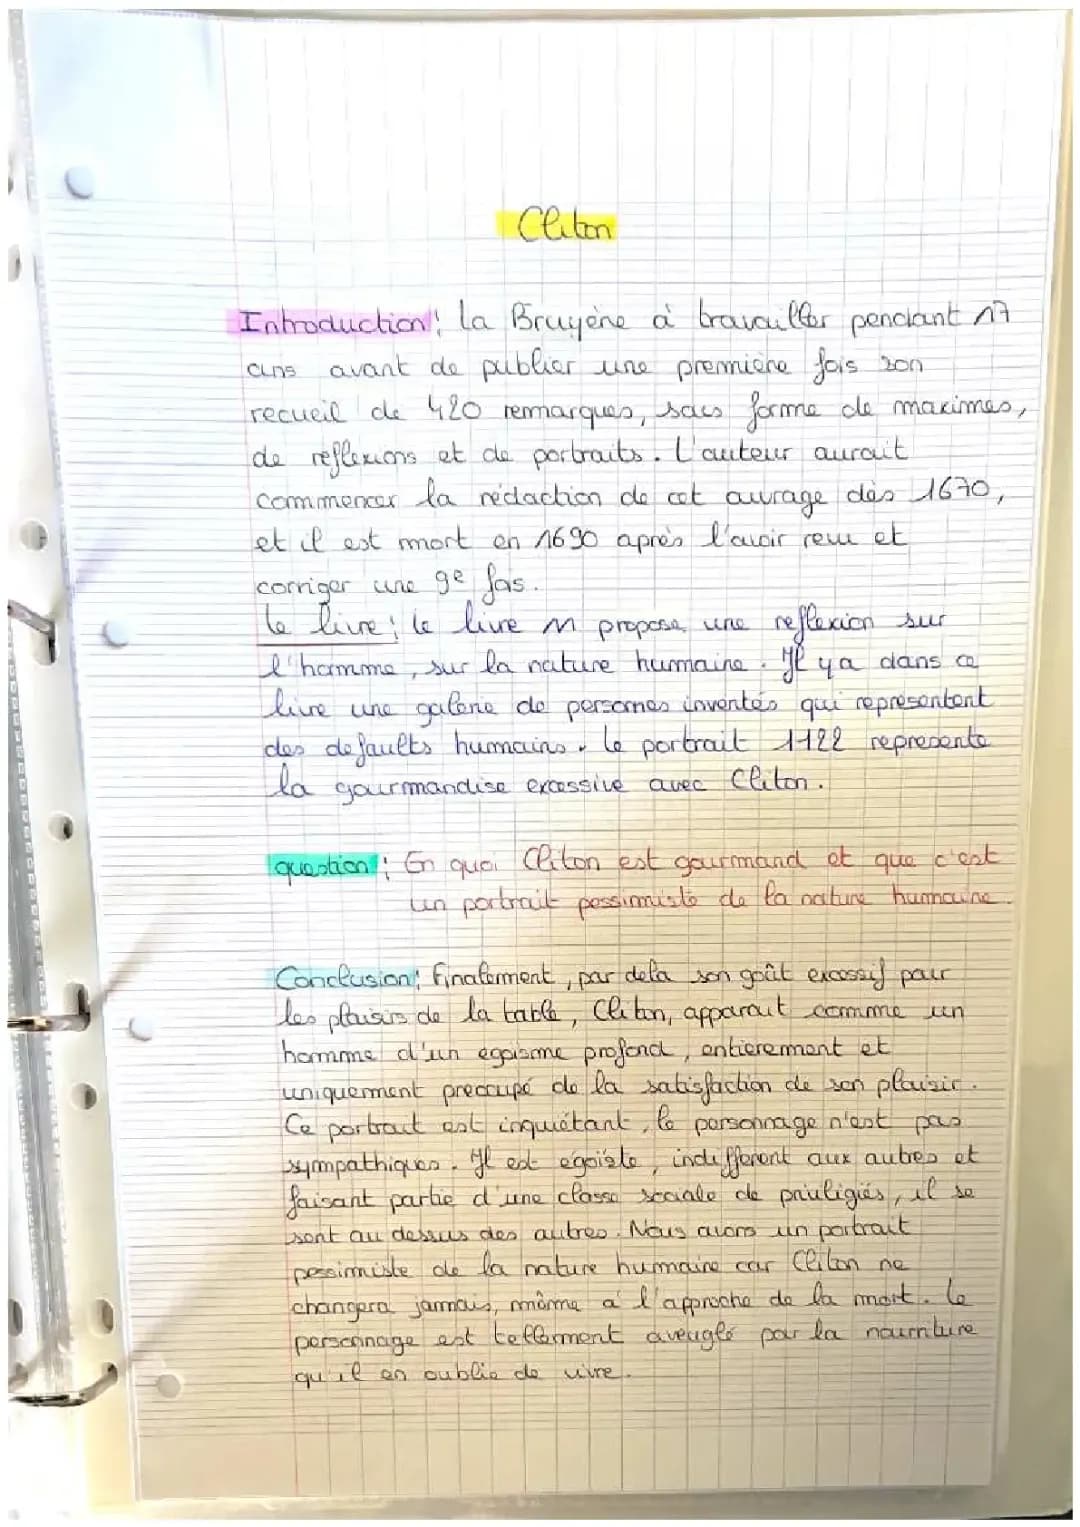 Cliton
Introduction : la Bruyère à travailler pendant 17
ans avant de publier une première fois son
recueil de 420 remarques, sous forme de maximes,
de réflexions et de portraits. L'auteur aurait
commencer la rédaction de cet ouvrage dès 1670,
et il est mort en 1690 après l'avoir revu et
corriger une 9e fois.
Le livre : le livre m propose une reflexion sur
l'homme, sur la nature humaine. Il y a dans ce
livre une galerie de personnes inventés qui représentent
des defaults humains. le portrait 1122 represente
la gourmandise excessive avec Cliton.
question : En quoi Cliton est gourmand et que c'est
un portrait pessimiste de la nature humaine.
Conclusion : Finalement, par dela son goût excessif pour
les plaisirs de la table, Cliton, apparait comme un
homme d'un egoisme profond, entierement et
uniquement preocupé de la satisfaction de son plaisir.
Ce portrait est inquiétant, le personnage n'est pas
sympathiques. Il est egoiste, indifferent aux autres et
faisant partie d'une classe sociale de priviligiés, il se
sent au dessus des autres. Nous avons un portrait
pessimiste de la nature humaine car Cliton ne
changera jamais, même a l'approche de la mort. Le
personnage est tellement aveuglé par la nourriture
qu'il en oublie de vivre.